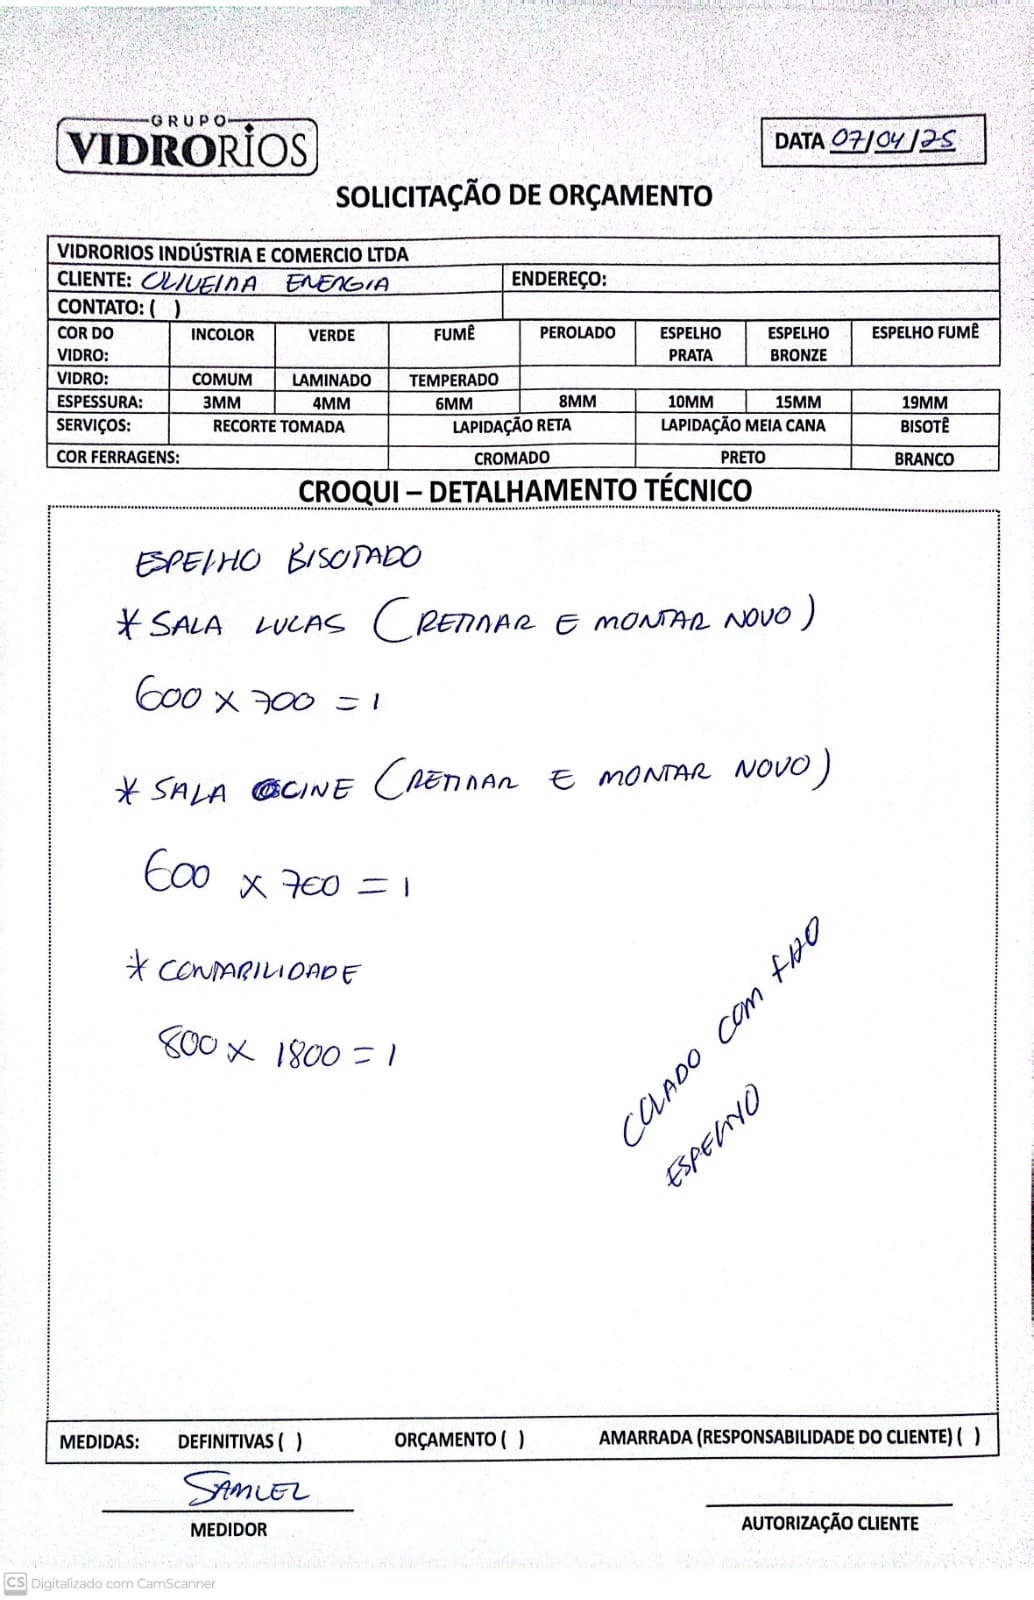 GRUPO
VIDRORIOS
DATA 07/04/25
SOLICITAÇÃO DE ORÇAMENTO
VIDRORIOS INDÚSTRIA E COMERCIO LTDA
CLIENTE: OLIVEIRA ENERGIA ENDEREÇO:
CONTATO: ( )
COR DO VIDRO: INCOLOR VERDE FUMÊ PEROLADO ESPELHO PRATA ESPELHO BRONZE ESPELHO FUMÊ
VIDRO: COMUM LAMINADO TEMPERADO
ESPESSURA: 3MM 4MM 6MM 8MM 10MM 15MM 19MM
SERVIÇOS: RECORTE TOMADA LAPIDAÇÃO RETA LAPIDAÇÃO MEIA CANA BISOTÊ
COR FERRAGENS: CROMADO PRETO BRANCO
CROQUI – DETALHAMENTO TÉCNICO
ESPELHO BISOTADO
* SALA LUCAS (RETIRAR E MONTAR NOVO)
600 x 700 = 1
* SALA CINE (RETIRAR E MONTAR NOVO)
600 x 700 = 1
* CONTABILIDADE
800 x 1800 = 1
COLADO COM FIXO
ESPELHO
MEDIDAS: DEFINITIVAS ( ) ORÇAMENTO ( ) AMARRADA (RESPONSABILIDADE DO CLIENTE) ( )
SAMUEL
MEDIDOR
AUTORIZAÇÃO CLIENTE
CS Digitalizado com CamScanner